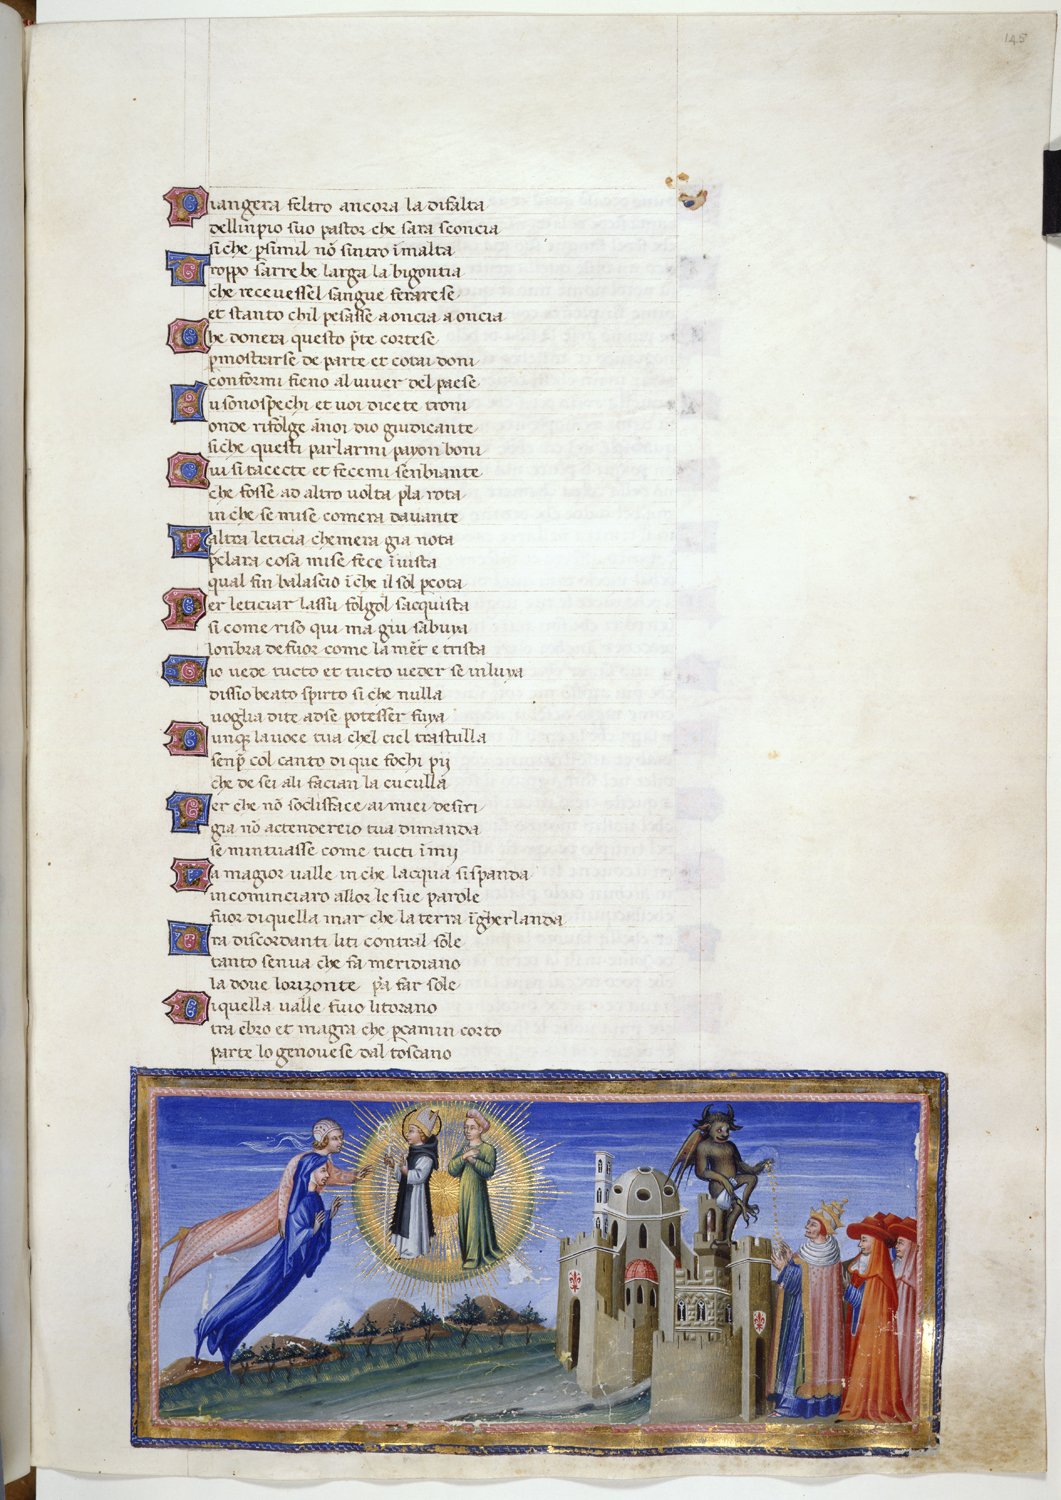 145
Piangera feltro ancora la difalta
dellinpio suo pastor che sara sconcia
si che psimil nõ sintro ĩ malta
Troppo sarrebe larga la bigontia
che recevessel sangue ferarese
et stanto chil pesasse a oncia a oncia
Che donera questo p̃te cortese
pmostrarse de parte et cotai doni
conformi fieno al viver del paese
Su sono spechi et voi dicete troni
onde rifolge ãnoi dio giudicante
si che questi parlarmi payon boni
Qui si tacecte et fecemi senbiante
che fosse ad altro volta pla rota
in che se mise comera davante
Laltra leticia che mera gia nota
pclara cosa mise fece ĩ vista
qual fin balascio ĩ che il sol pcota
Per leticiar lassu folgol sacquista
si come riso qui ma giu sabuya
lonbra de fuor come la mẽt e trista
Dio vede tucto et tucto veder se inluya
dissio beato spirto si che nulla
voglia dite adse potesser fuya
Dunq̃ la voce tua chel ciel trastulla
senp̃ col canto di que fochi pij
che de sei ali facian la cuculla
Per che nõ sodisface ai miei desiri
gia nõ actendereio tua dimanda
se mintuasse come tucti ĩ mij
La magior valle in che lacqua si spanda
incominciaro allor le sue parole
fuor di quella mar che la terra ĩgherlanda
Tra discordanti liti contral sole
tanto senva che fa meridiano
la dove lorizonte p̃a far sole
Di quella valle fuio litorano
tra ebro et magra che pcamin corto
parte lo genovese dal toscano